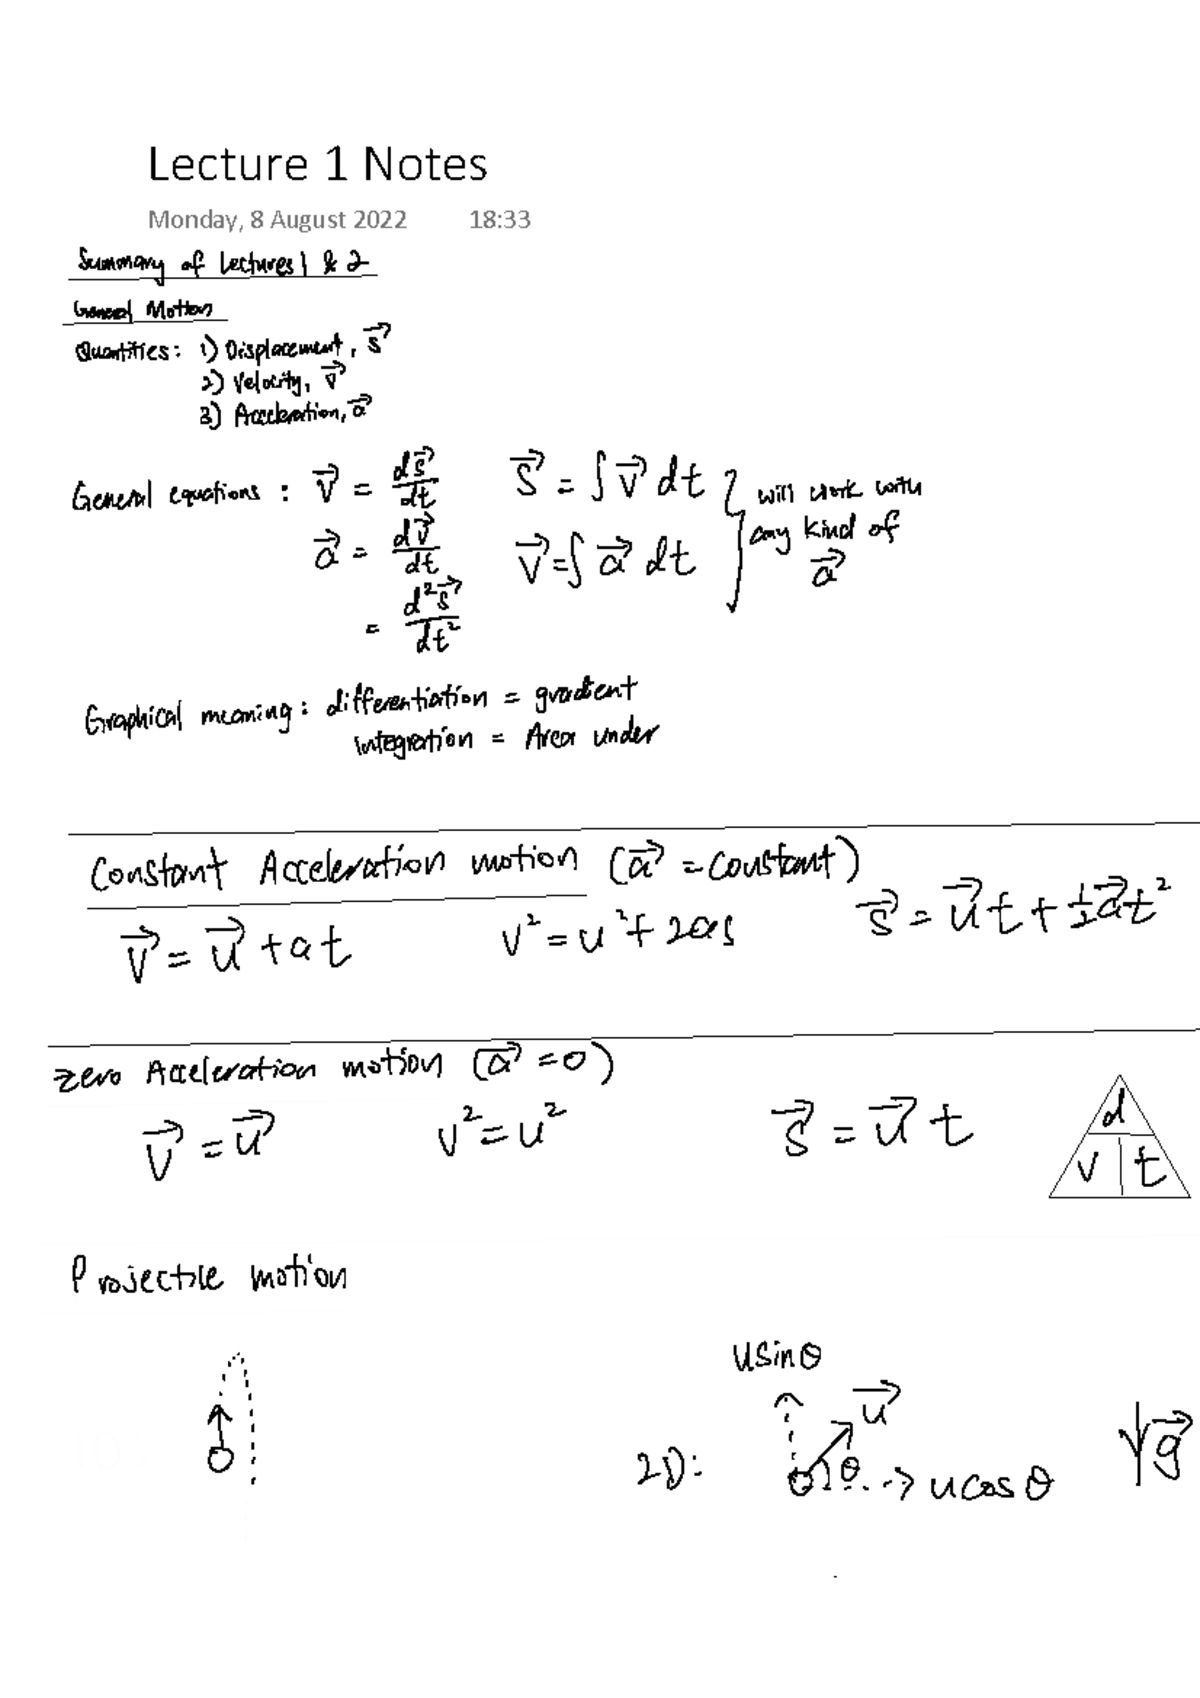 Lecture 1 Notes
Monday, 8 August 2022 18:33
Summary of Lectures 1 & 2
General Motion
Quantities: 1) Displacement, s⃗
2) Velocity, v⃗
3) Acceleration, a⃗
General equations: v⃗ = ds⃗/dt s⃗ = ∫ v⃗ dt } will work with
a⃗ = dv⃗/dt v⃗ = ∫ a⃗ dt any kind of
= d²s⃗/dt² a⃗
Graphical meaning: differentiation = gradient
integration = Area under
Constant Acceleration motion (a⃗ = constant)
v⃗ = u⃗ + at v² = u² + 2as s⃗ = u⃗t + ½a⃗t²
zero Acceleration motion (a⃗ = 0)
v⃗ = u⃗ v² = u² s⃗ = u⃗ t
d
v t
Projectile motion
usinθ
u⃗
2D: θ ucosθ g⃗